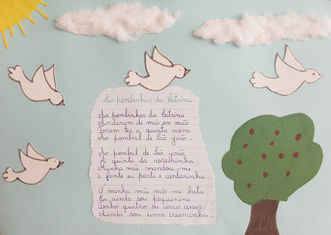 As pombinhas da Catrina
As pombinhas da Catrina
Andaram de mão em mão
Foram ter à quinta nova
Ao pombal de São João.
Ao pombal de São João
À quinta da roseirinha
Minha mãe mandou-me
à fonte eu parti a cantarinha.
Ó minha mãe não me bata
Eu ainda sou pequenina
Tenho quatro ou cinco anos
Ainda sou uma criancinha